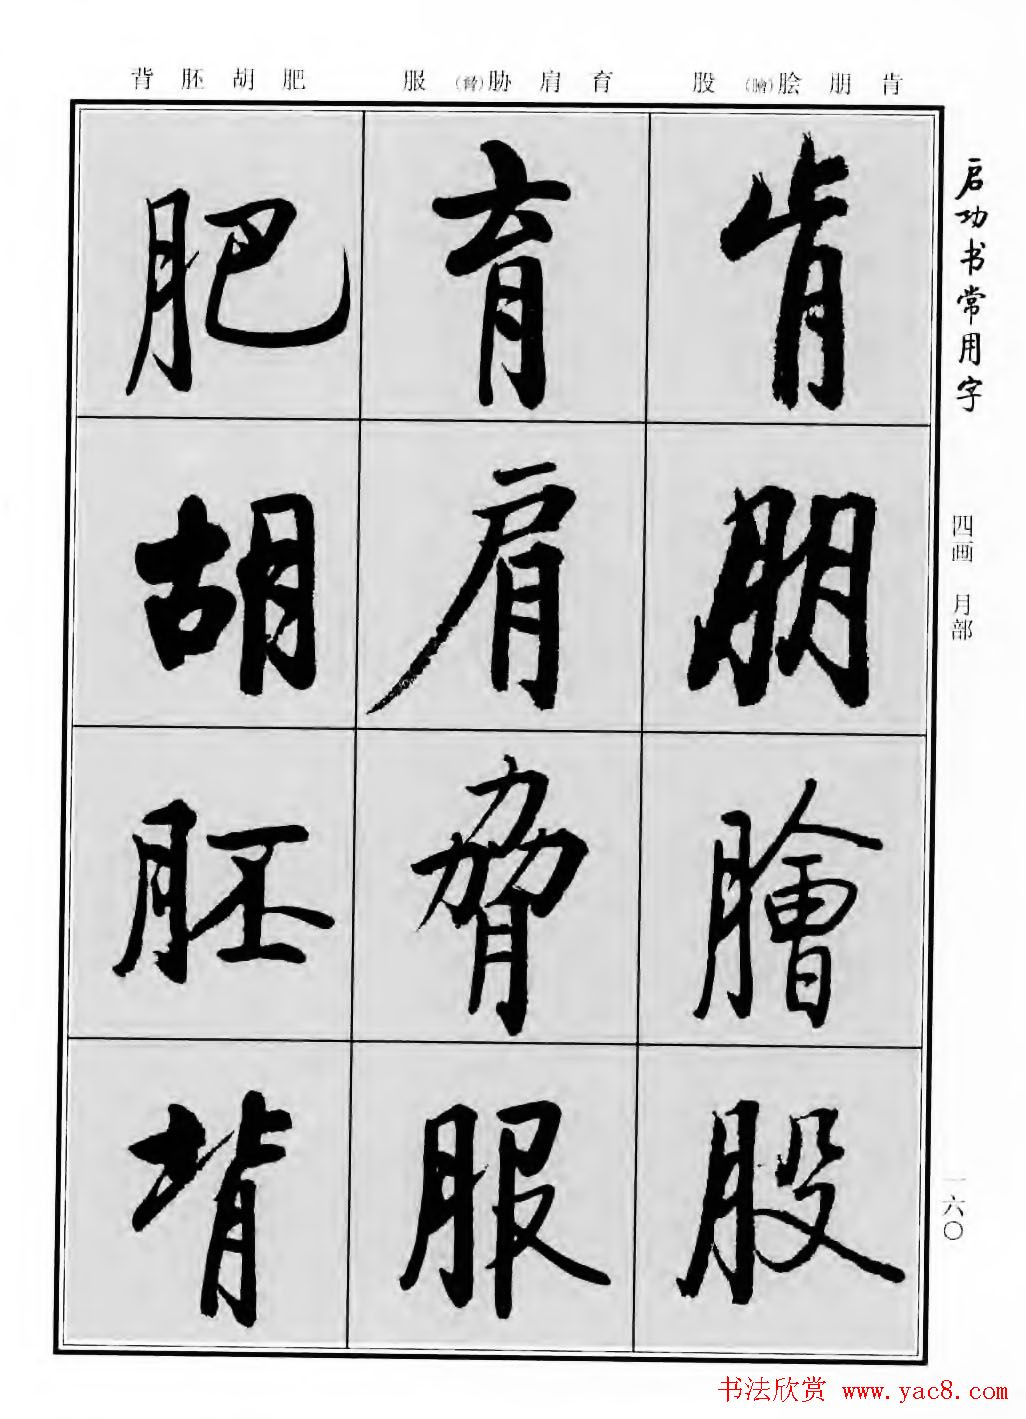 肯 朋 脍(膾) 股
育 肩 胁(脅) 服
肥 胡 胚 背
启功书常用字
四画 月部
一六〇
肯
朋
膾
股
育
肩
脅
服
肥
胡
胚
背
书法欣赏 www.yac8.com